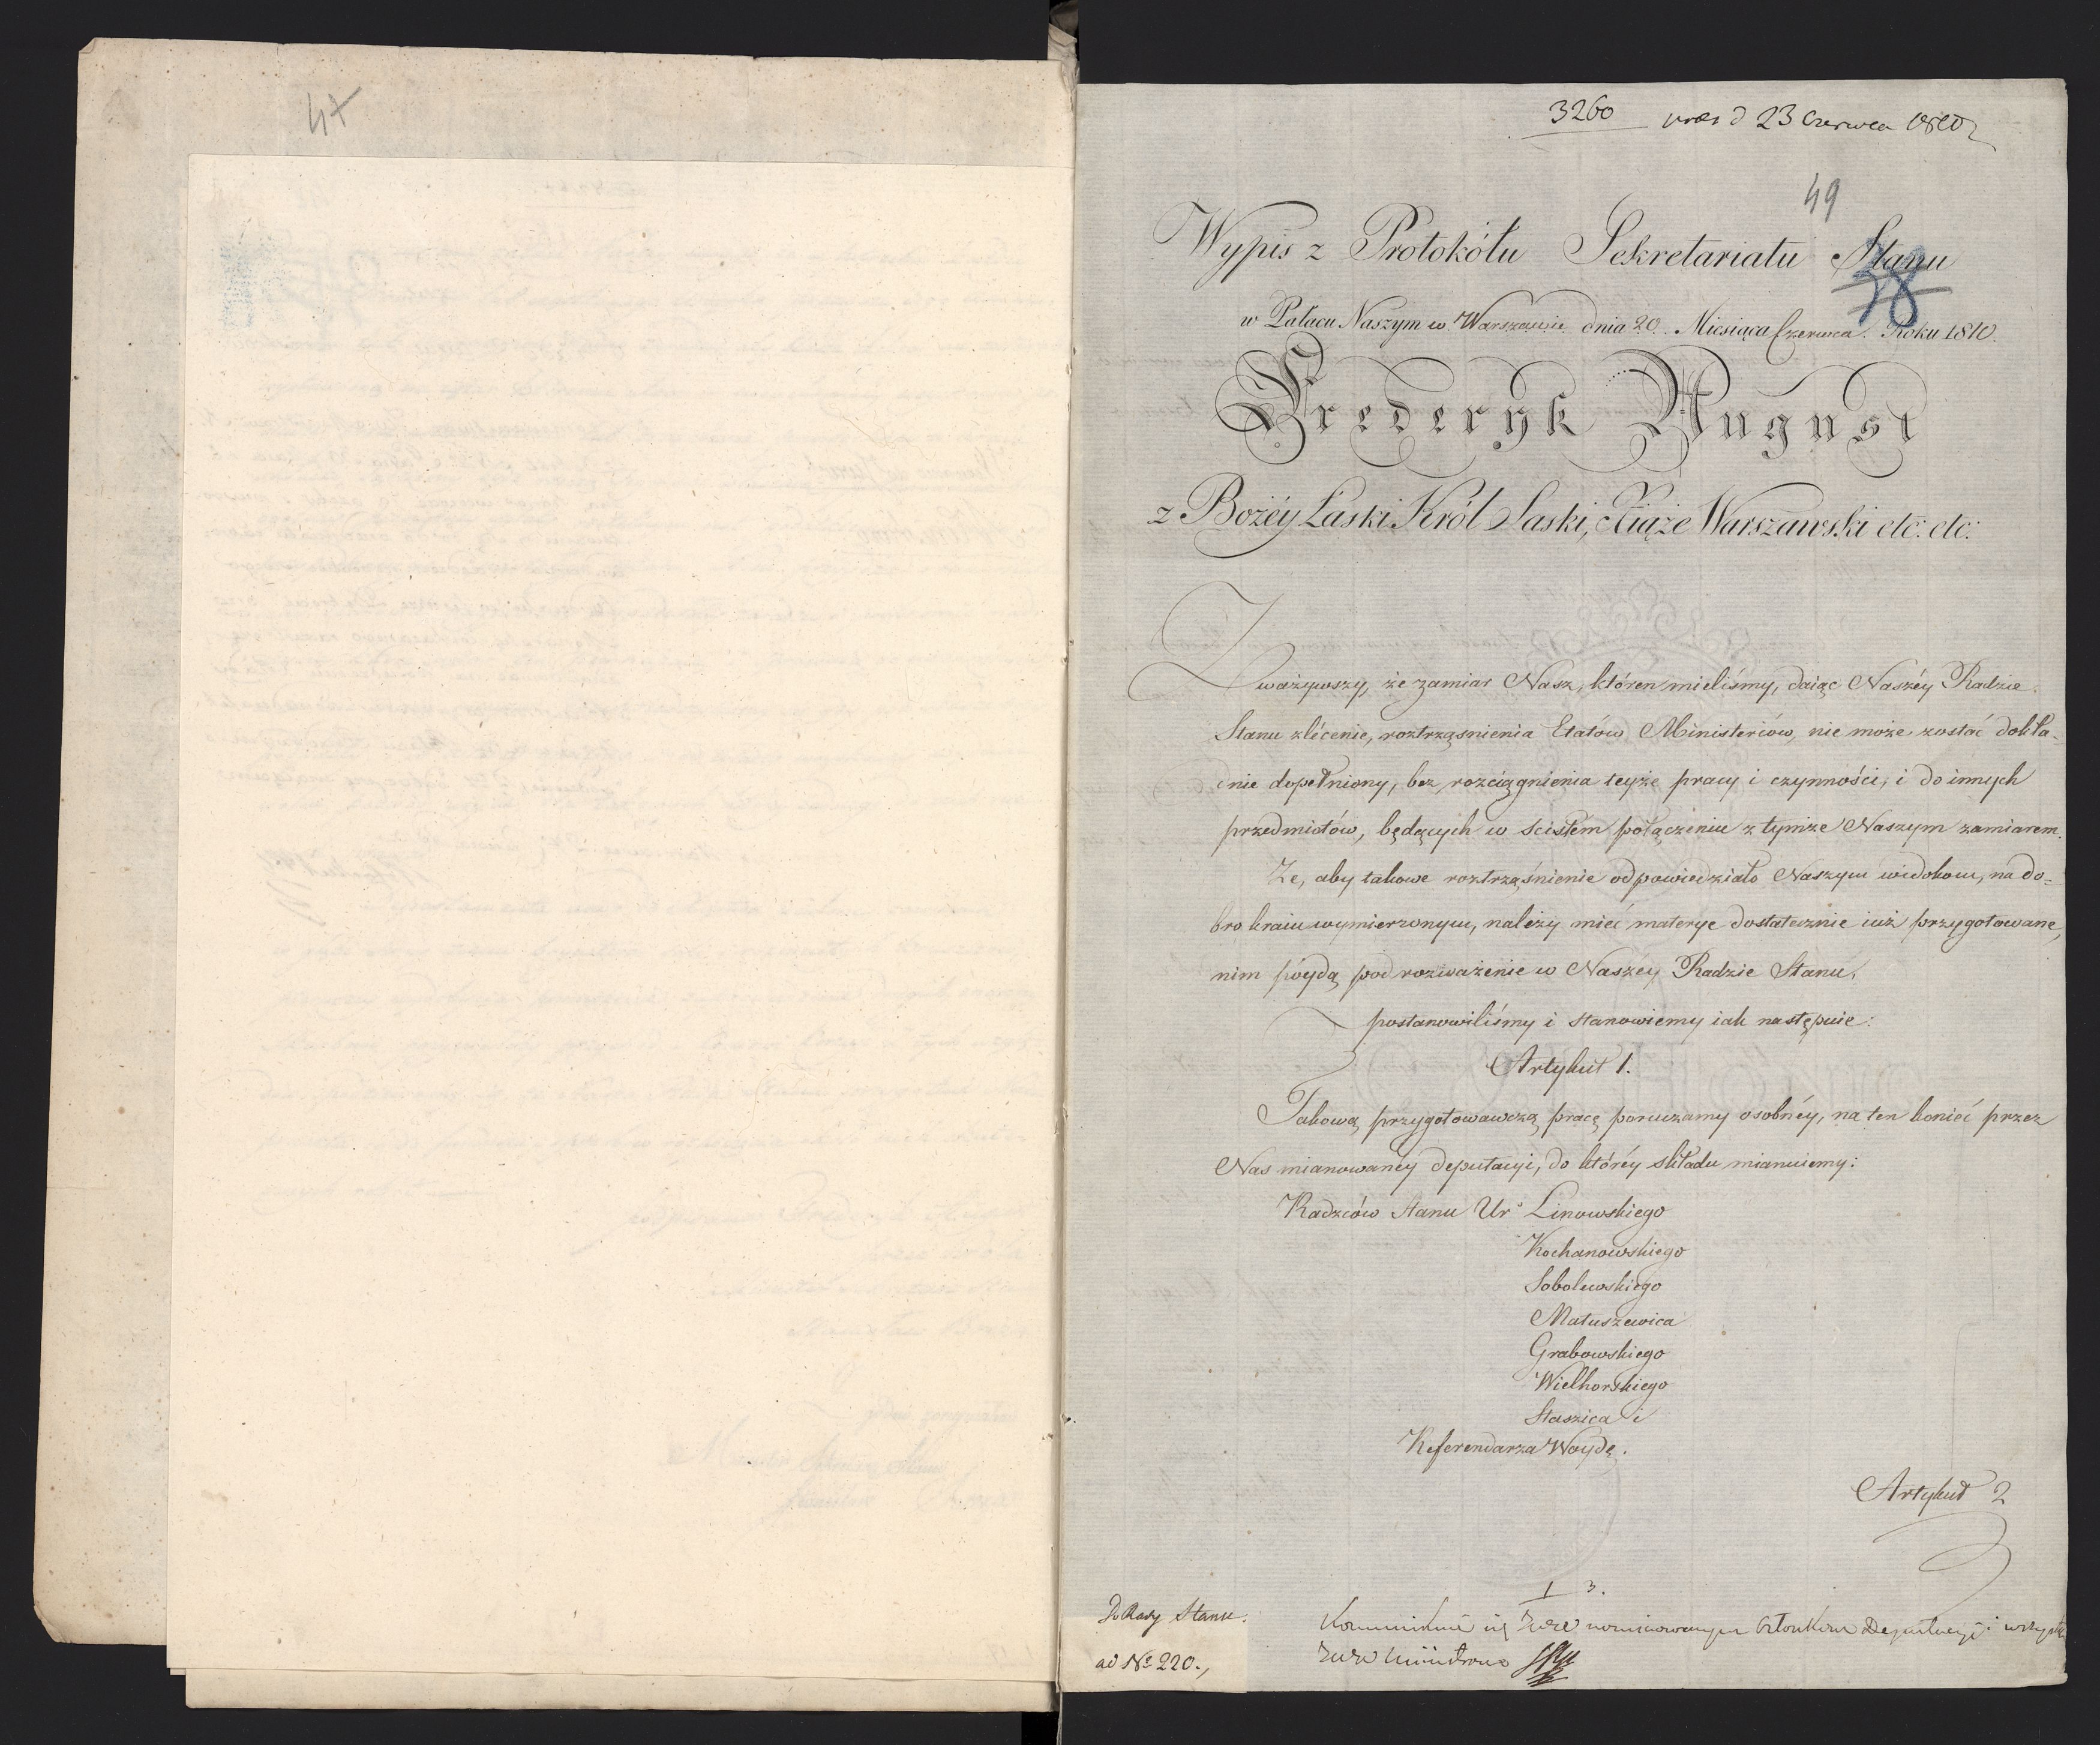 47
3260 pres d 23 Czerwca 1810
49
Wypis z Protokółu Sekretariatu Stanu
38
w Pałacu Naszym w Warszawie dnia 20. Miesiąca Czerwca. Roku 1810.
Frederyk August
z Bożéy Łaski Król Saski, Xiąże Warszawski etc: etc:
Zważywszy, że zamiar Nasz, któren mieliśmy, daiąc Naszéy Radzie
Stanu zlécenie, roztrząsnienia Etatów Ministeriów, nie może zostać dokła-
dnie dopełniony, bez rozciągnienia teyże pracy i czynności, i do innych
przedmiotów, będących w scisłem połączeniu z tymże Naszym zamiarem.
Że, aby takowe roztrząśnienie odpowiedziało Naszym widokom, na do-
bro kraiu wymierzonym, należy mieć materye dostatecznie iuż przygotowane,
nim póydą pod rozważenie w Naszéy Radzie Stanu,
postanowiliśmy i stanowiemy iak następuie:
Artykuł 1.
Takową przygotowawczą pracę poruczamy osobnéy, na ten koniec przez
Nas mianowanéy deputacyi, do któréy składu mianuiemy:
Radzców Stanu Ur. Linowskiego
Kochanowskiego
Sobolewskiego
Matuszewica
Grabowskiego
Wielhorskiego
Staszica i
Referendarza Woydę.
Artykuł 2
3.
Do Rady Stanu.
ad No 220.,
członkom Deputacyi i